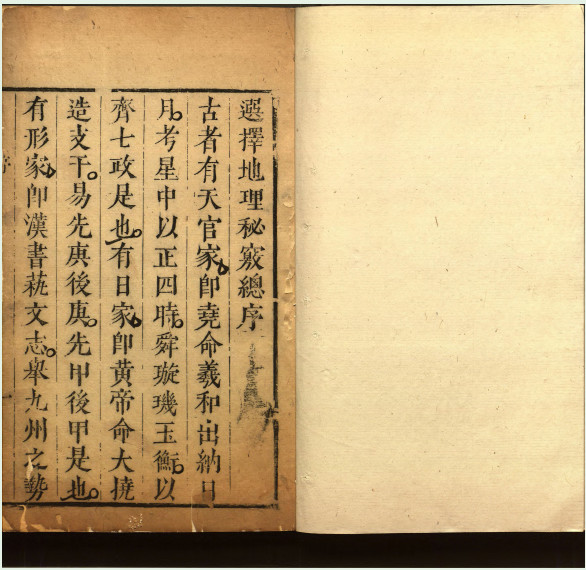 選擇地理秘竅總序
古者有天官家即堯命羲和出納日
月考星中以正四時舜璇璣玉衡以
齊七政是也有日家即黃帝命大撓
造支干易先庚後庚先甲後甲是也
有形家即漢書蓺文志舉九州之勢
序